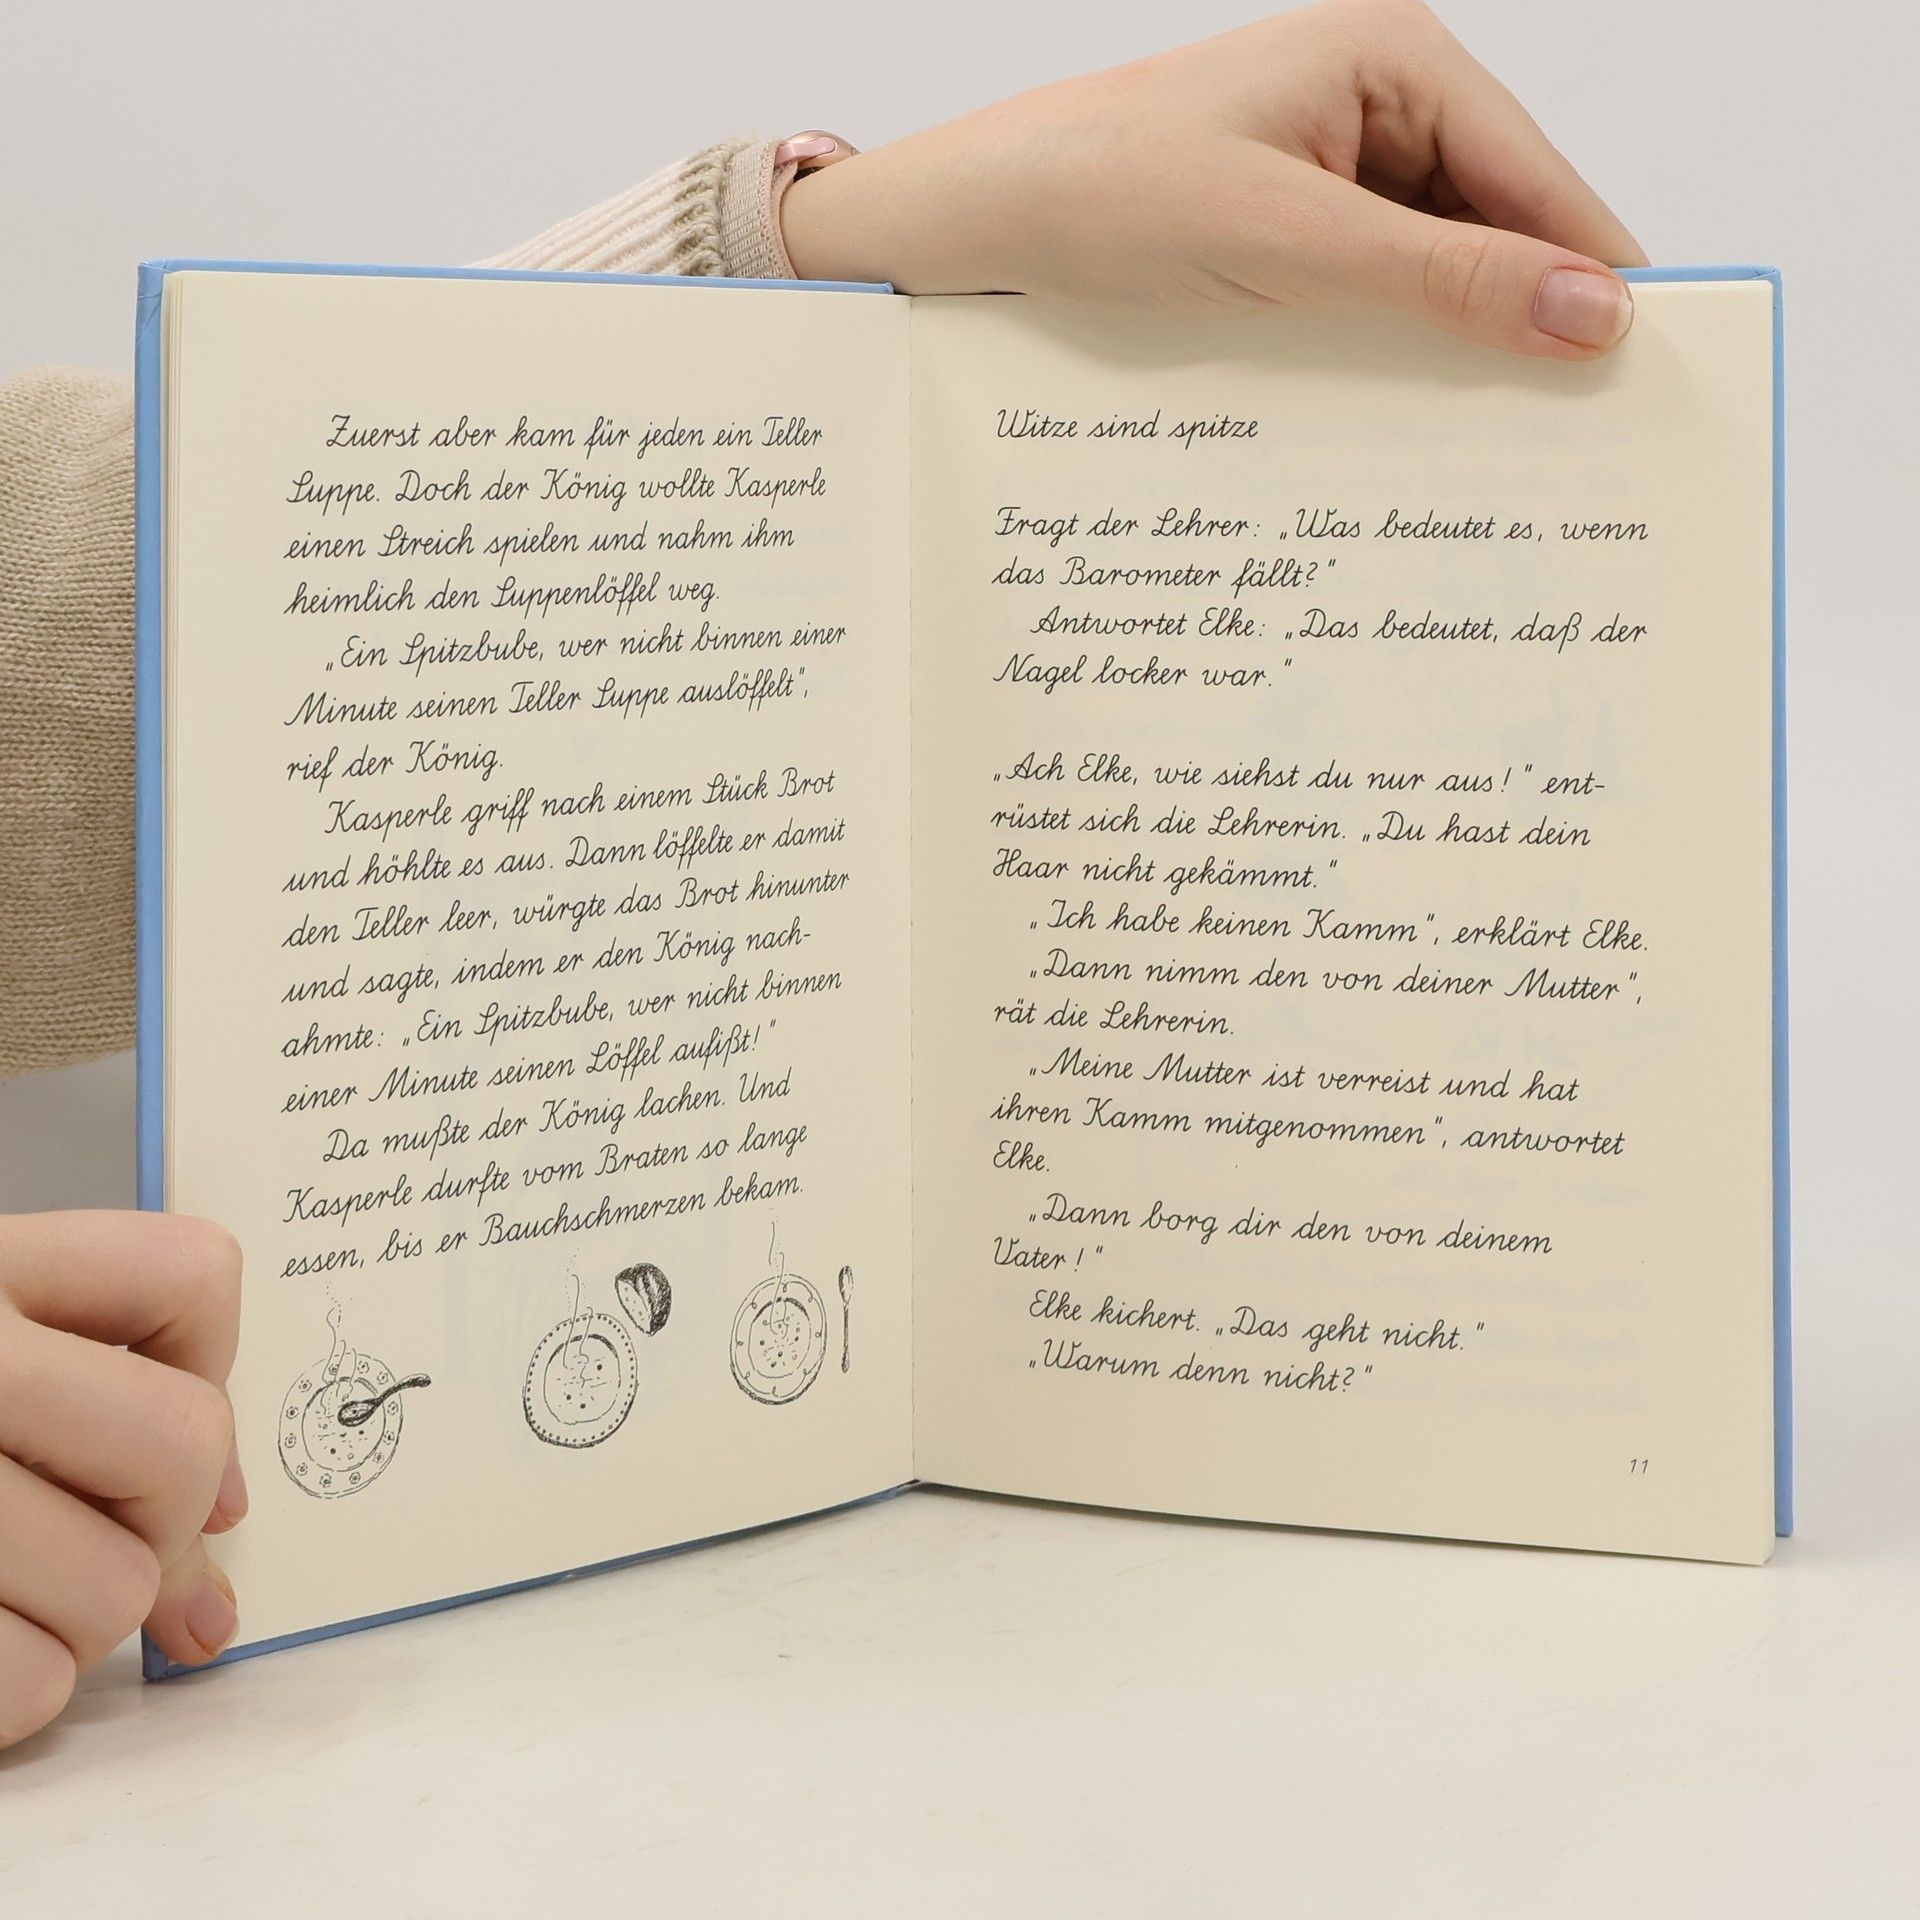 Zuerst aber kam für jeden ein Teller
Suppe. Doch der König wollte Kasperle
einen Streich spielen und nahm ihm
heimlich den Suppenlöffel weg.
„Ein Spitzbube, wer nicht binnen einer
Minute seinen Teller Suppe auslöffelt“,
rief der König.
Kasperle griff nach einem Stück Brot
und höhlte es aus. Dann löffelte er damit
den Teller leer, würgte das Brot hinunter
und sagte, indem er den König nach-
ahmte: „Ein Spitzbube, wer nicht binnen
einer Minute seinen Löffel aufißt!“
Da mußte der König lachen. Und
Kasperle durfte vom Braten so lange
essen, bis er Bauchschmerzen bekam.
Witze sind spitze
Fragt der Lehrer: „Was bedeutet es, wenn
das Barometer fällt?“
Antwortet Elke: „Das bedeutet, daß der
Nagel locker war.“
„Ach Elke, wie siehst du nur aus!“ ent-
rüstet sich die Lehrerin. „Du hast dein
Haar nicht gekämmt.“
„Ich habe keinen Kamm“, erklärt Elke.
„Dann nimm den von deiner Mutter“,
rät die Lehrerin.
„Meine Mutter ist verreist und hat
ihren Kamm mitgenommen“, antwortet
Elke.
„Dann borg dir den von deinem
Vater!“
Elke kichert. „Das geht nicht.“
„Warum denn nicht?“
11